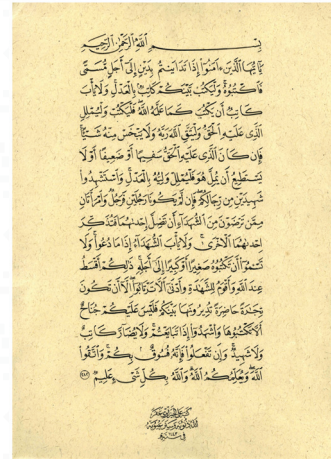 بِسْمِ اللَّهِ الرَّحْمَٰنِ الرَّحِيمِ
يَا أَيُّهَا الَّذِينَ ءَامَنُوا إِذَا تَدَايَنتُم بِدَيْنٍ إِلَىٰ أَجَلٍ مُّسَمًّى
فَاكْتُبُوهُ وَلْيَكْتُب بَّيْنَكُمْ كَاتِبٌ بِالْعَدْلِ وَلَا يَأْبَ
كَاتِبٌ أَن يَكْتُبَ كَمَا عَلَّمَهُ اللَّهُ فَلْيَكْتُبْ وَلْيُمْلِلِ
الَّذِي عَلَيْهِ الْحَقُّ وَلْيَتَّقِ اللَّهَ رَبَّهُ وَلَا يَبْخَسْ مِنْهُ شَيْئًا
فَإِن كَانَ الَّذِي عَلَيْهِ الْحَقُّ سَفِيهًا أَوْ ضَعِيفًا أَوْ لَا
يَسْتَطِيعُ أَن يُمِلَّ هُوَ فَلْيُمْلِلْ وَلِيُّهُ بِالْعَدْلِ وَاسْتَشْهِدُوا
شَهِيدَيْنِ مِن رِّجَالِكُمْ فَإِن لَّمْ يَكُونَا رَجُلَيْنِ فَرَجُلٌ وَامْرَأَتَانِ
مِمَّن تَرْضَوْنَ مِنَ الشُّهَدَاءِ أَن تَضِلَّ إِحْدَاهُمَا فَتُذَكِّرَ
إِحْدَاهُمَا الْأُخْرَىٰ وَلَا يَأْبَ الشُّهَدَاءُ إِذَا مَا دُعُوا وَلَا
تَسْأَمُوا أَن تَكْتُبُوهُ صَغِيرًا أَوْ كَبِيرًا إِلَىٰ أَجَلِهِ ذَٰلِكُمْ أَقْسَطُ
عِندَ اللَّهِ وَأَقْوَمُ لِلشَّهَادَةِ وَأَدْنَىٰ أَلَّا تَرْتَابُوا إِلَّا أَن تَكُونَ
تِجَارَةً حَاضِرَةً تُدِيرُونَهَا بَيْنَكُمْ فَلَيْسَ عَلَيْكُمْ جُنَاحٌ
أَلَّا تَكْتُبُوهَا وَأَشْهِدُوا إِذَا تَبَايَعْتُمْ وَلَا يُضَارَّ كَاتِبٌ
وَلَا شَهِيدٌ وَإِن تَفْعَلُوا فَإِنَّهُ فُسُوقٌ بِكُمْ وَاتَّقُوا
اللَّهَ وَيُعَلِّمُكُمُ اللَّهُ وَاللَّهُ بِكُلِّ شَيْءٍ عَلِيمٌ ٢٨٢